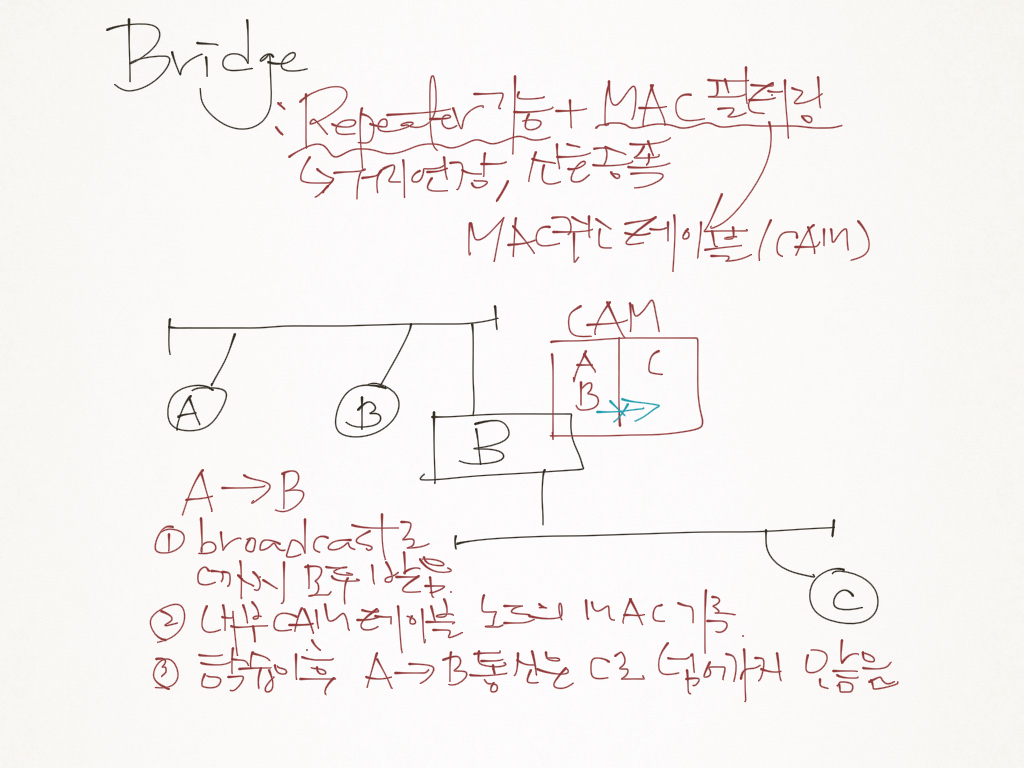 Bridge
: Repeater 기능 + MAC 필터링
↳ 거리연장, 신호증폭
MAC 테이블/(CAM)
CAM
A C
B
A B
B
A → B
① broadcast로
② 내부 CAM 테이블 노드의 MAC 기록
C
③ 학습이후 A → B 통신은 C로 넘어가지 않음